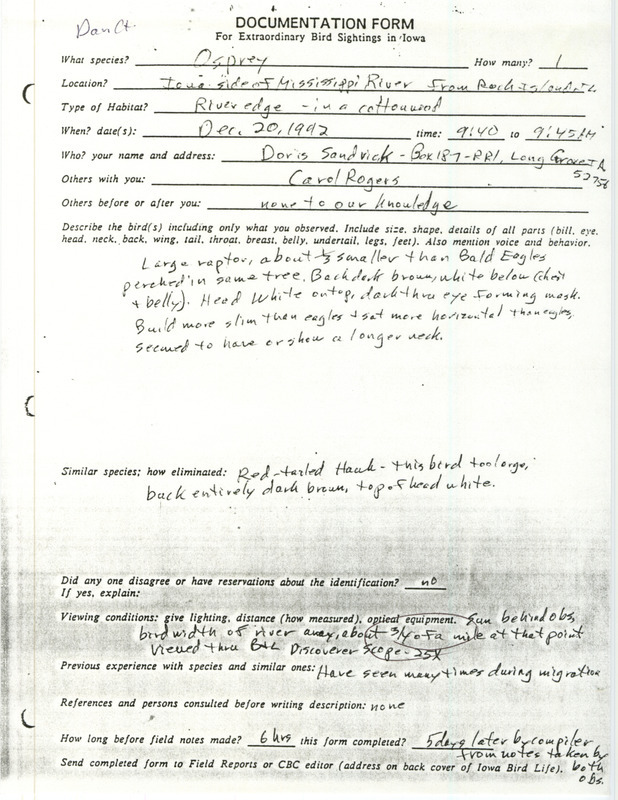 Dan Ct.
DOCUMENTATION FORM
For Extraordinary Bird Sightings in Iowa
What species? Osprey How many? 1
Location? Iowa side of Mississippi River from Rock Island, IL
Type of Habitat? River edge - in a cottonwood
When? date(s): Dec. 20, 1992 time: 9:40 to 9:45 AM
Who? your name and address: Doris Sandvick - Box 187 - RR1, Long Grove IA
52756
Others with you: Carol Rogers
Others before or after you: none to our knowledge
Describe the bird(s) including only what you observed. Include size, shape, details of all parts (bill, eye,
head, neck, back, wing, tail, throat, breast, belly, undertail, legs, feet). Also mention voice and behavior.
Large raptor, about 1/3 smaller than Bald Eagles
perched in same tree. Back dark brown, white below (chest
+ belly). Head White on top, dark thru eye forming mask.
Build more slim than eagles + sat more horizontal than eagles,
seemed to have or show a longer neck.
Similar species; how eliminated: Red-tailed Hawk - this bird too large,
back entirely dark brown, top of head white.
Did any one disagree or have reservations about the identification? no
If yes, explain:
Viewing conditions: give lighting, distance (how measured), optical equipment. Sun behind obs,
bird width of river away, about 3/4 of a mile at that point
Viewed thru B&L Discoverer Scope - 25X
Previous experience with species and similar ones: Have seen many times during migration
References and persons consulted before writing description: none
How long before field notes made? 6 hrs this form completed? 5 days later by compiler
from notes taken by
Send completed form to Field Reports or CBC editor (address on back cover of Iowa Bird Life). both
obs.